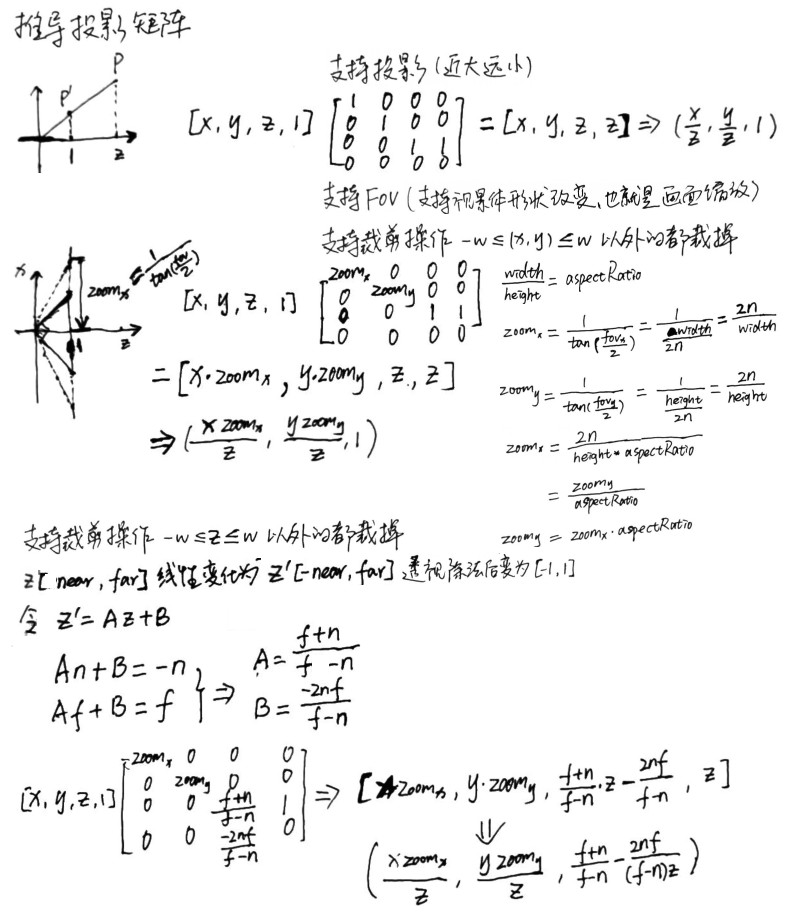 推导投影矩阵
P
P'
1 z
支持投影(近大远小)
[x, y, z, 1] [1 0 0 0; 0 1 0 0; 0 0 1 1; 0 0 0 0] = [x, y, z, z] ⇒ (x/z, y/z, 1)
支持FOV(支持视景体形状改变,也就是画面缩放)
支持裁剪操作 -w≤(x,y)≤w 以外的都裁掉
x
zoomₓ = 1/tan(fov/2)
1 z
[x, y, z, 1] [zoomₓ 0 0 0; 0 zoomy 0 0; 0 0 1 1; 0 0 0 0]
= [x·zoomₓ, y·zoomy, z, z]
⇒ (x zoomₓ/z, y zoomy/z, 1)
width/height = aspectRatio
zoomₓ = 1/tan(fovₓ/2) = 1/(width/2n) = 2n/width
zoomy = 1/tan(fovy/2) = 1/(height/2n) = 2n/height
zoomₓ = 2n/(height * aspectRatio)
= zoomy/aspectRatio
zoomy = zoomₓ · aspectRatio
支持裁剪操作 -w≤z≤w 以外的都裁掉
z[near, far] 线性变化为 z'[-near, far] 透视除法后变为[-1,1]
令 z' = Az+B
An+B = -n
Af+B = f
⇒ A = (f+n)/(f-n)
B = -2nf/(f-n)
[x, y, z, 1] [zoomₓ 0 0 0; 0 zoomy 0 0; 0 0 (f+n)/(f-n) 1; 0 0 -2nf/(f-n) 0] ⇒ [x zoomₓ, y·zoomy, (f+n)/(f-n)·z - 2nf/(f-n), z]
⇓
(x zoomₓ/z, y zoomy/z, (f+n)/(f-n) - 2nf/((f-n)z))